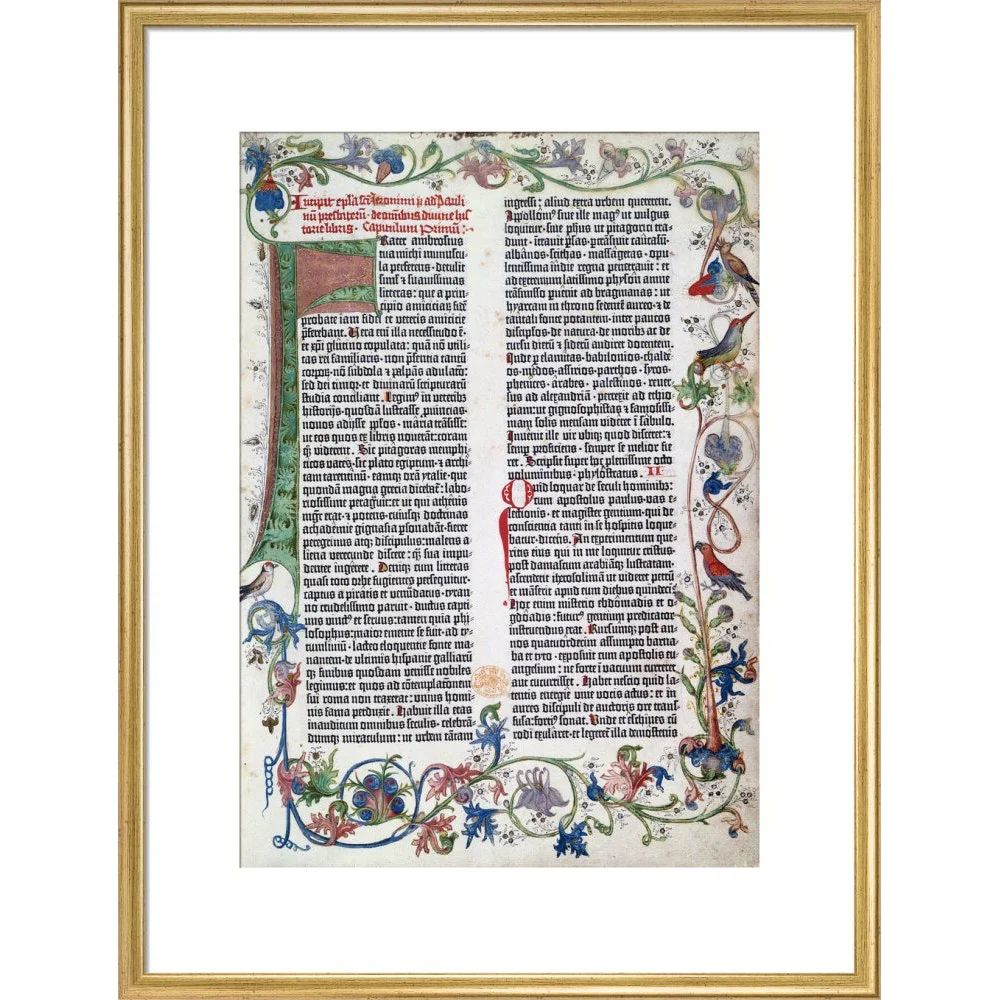 Incipit epl̃a sc̃i Jeronimi p̃ ad Pauli
nũ presbiterũ · de om̃ibus divine his
torie libris · Capitulum Primũ :
Frater ambrosius
tua michi munuscu-
la perferens · detulit
simĺ ⁊ suavissimas
litteras: que a prin-
cipio amiciciaꝝ fidẽ
probate iam fidei et veteris amicicie
p̃ferebant. Vera em̃ illa necessitudo ẽ ·
et xp̃i glutino copulata: quã nõ utili-
tas rei familiaris · non p̃sentia tantũ
corpoꝝ · nõ subdola ⁊ palpãs adulatõ:
sed dei timoꝝ · et divinaꝝ scripturarũ
studia conciliant. Legimꝰ in veterib̃
historijs · quosdã lustrasse p̃vincias ·
novos adijsse pp̃los · maria trãsisse:
ut eos quos ex libris noverãt: coram
qꝫ viderent. Sic pitagoras memphi-
ticos vates · sic plato egiptum · ⁊ archi-
tam tarentinũ · eamqꝫ orã ytalie · que
quondã magna grecia dicebat̃: labo-
riosissime peragvit: et ut qui athenis
mgr̃ erat · ⁊ potens · cuiusqꝫ doctrinas
achademie gignasia p̃sonabãt · fieret
peregrinus atqꝫ discipulus: malens a-
liena verecunde discere: qꝫ sua impu-
denter ingerere. Deniqꝫ cum litteras
quasi toto orbe fugientes persequitur ·
captus a piratis et venundatus · tyran-
no crudelissimo paruit · ductus capti-
vus vinctꝰ et servus: tamen quia phi-
losophus: maior emente se fuit · ad ty-
tumlivium · lacteo eloquentie fonte ma-
nantem · de ultimis hispanie galliarũ
qꝫ finibus quosdam venisse nobiles
legimus: et quos ad cõtemplatõnem
sui roma non traxerat: unius homi-
nis fama perduxit. Habuit illa etas
inauditum omnibus seculis · celebrã-
dumqꝫ miraculum: ut urbem tãtam
ingressi: aliud extra urbem quererent.
Appollonꝰ sive ille magꝰ ut vulgus
loquitur · sive ph̃us ut pitagorici tra-
dunt · itravit p̃sas · p̃trãsivit caucasũ ·
albãnos · scithas · massagetas · opu-
lentissima ĩndie regna penetravit: et
ad extremum latissimo physon amne
trãsmisso p̃venit ad bragmanas: ut
hyarcam in throno sedentẽ aureo · ⁊ de
tantali fonte potantem · inter paucos
discip̃los · de natura · de moribs ac de
cursu dierũ ⁊ siderũ audiret docentem.
Inde p̃ elamitas · babilonios · chalde-
os · medos · assirios · parthos · syros ·
phenices · arabes · palestinos · rever-
sus ad alexandriã · perrexit ad ethio-
piam: ut gignosophistas ⁊ famosissi-
mam solis mensam videret ĩ sabulo.
Invenit ille vir ubiqꝫ quod disceret: ⁊
semp̃ proficiens · semper se melior fie-
ret. Scripsit super hoc plenissime octo
voluminibus · phylostratus. II
Quid loquar de seculi hominibꝫ:
cum apostolus paulus · vas e-
lectionis · et magister gentium · qui de
conscientia tanti in se hospitis loque-
batur · dicens. An experimentum que-
ritis eius qui in me loquitur cristus.
post damascum arabiãqꝫ lustratam ·
ascenderit iherosolimã ut videret petrũ
et mãserit apud eum diebus quindecĩ.
Hoc enim misterio ebdomadis et o-
gdoadis: futurꝰ gentium predicator
instruendus erat. Rursumqꝫ post an-
nos quatuordecim assumpto barna-
ba et tyto · exposuit cum apostolis eu-
angelium: ne forte ĩ vacuum curreret
aut cucurrisset. Habet nescio quid la-
tentis energie vive vocis actus: et in
aures discipuli de auctoris ore trans-
fusa: fortiꝰ sonat. Unde et eschines cũ
rodi exularet · et legeret̃ illa demostenis